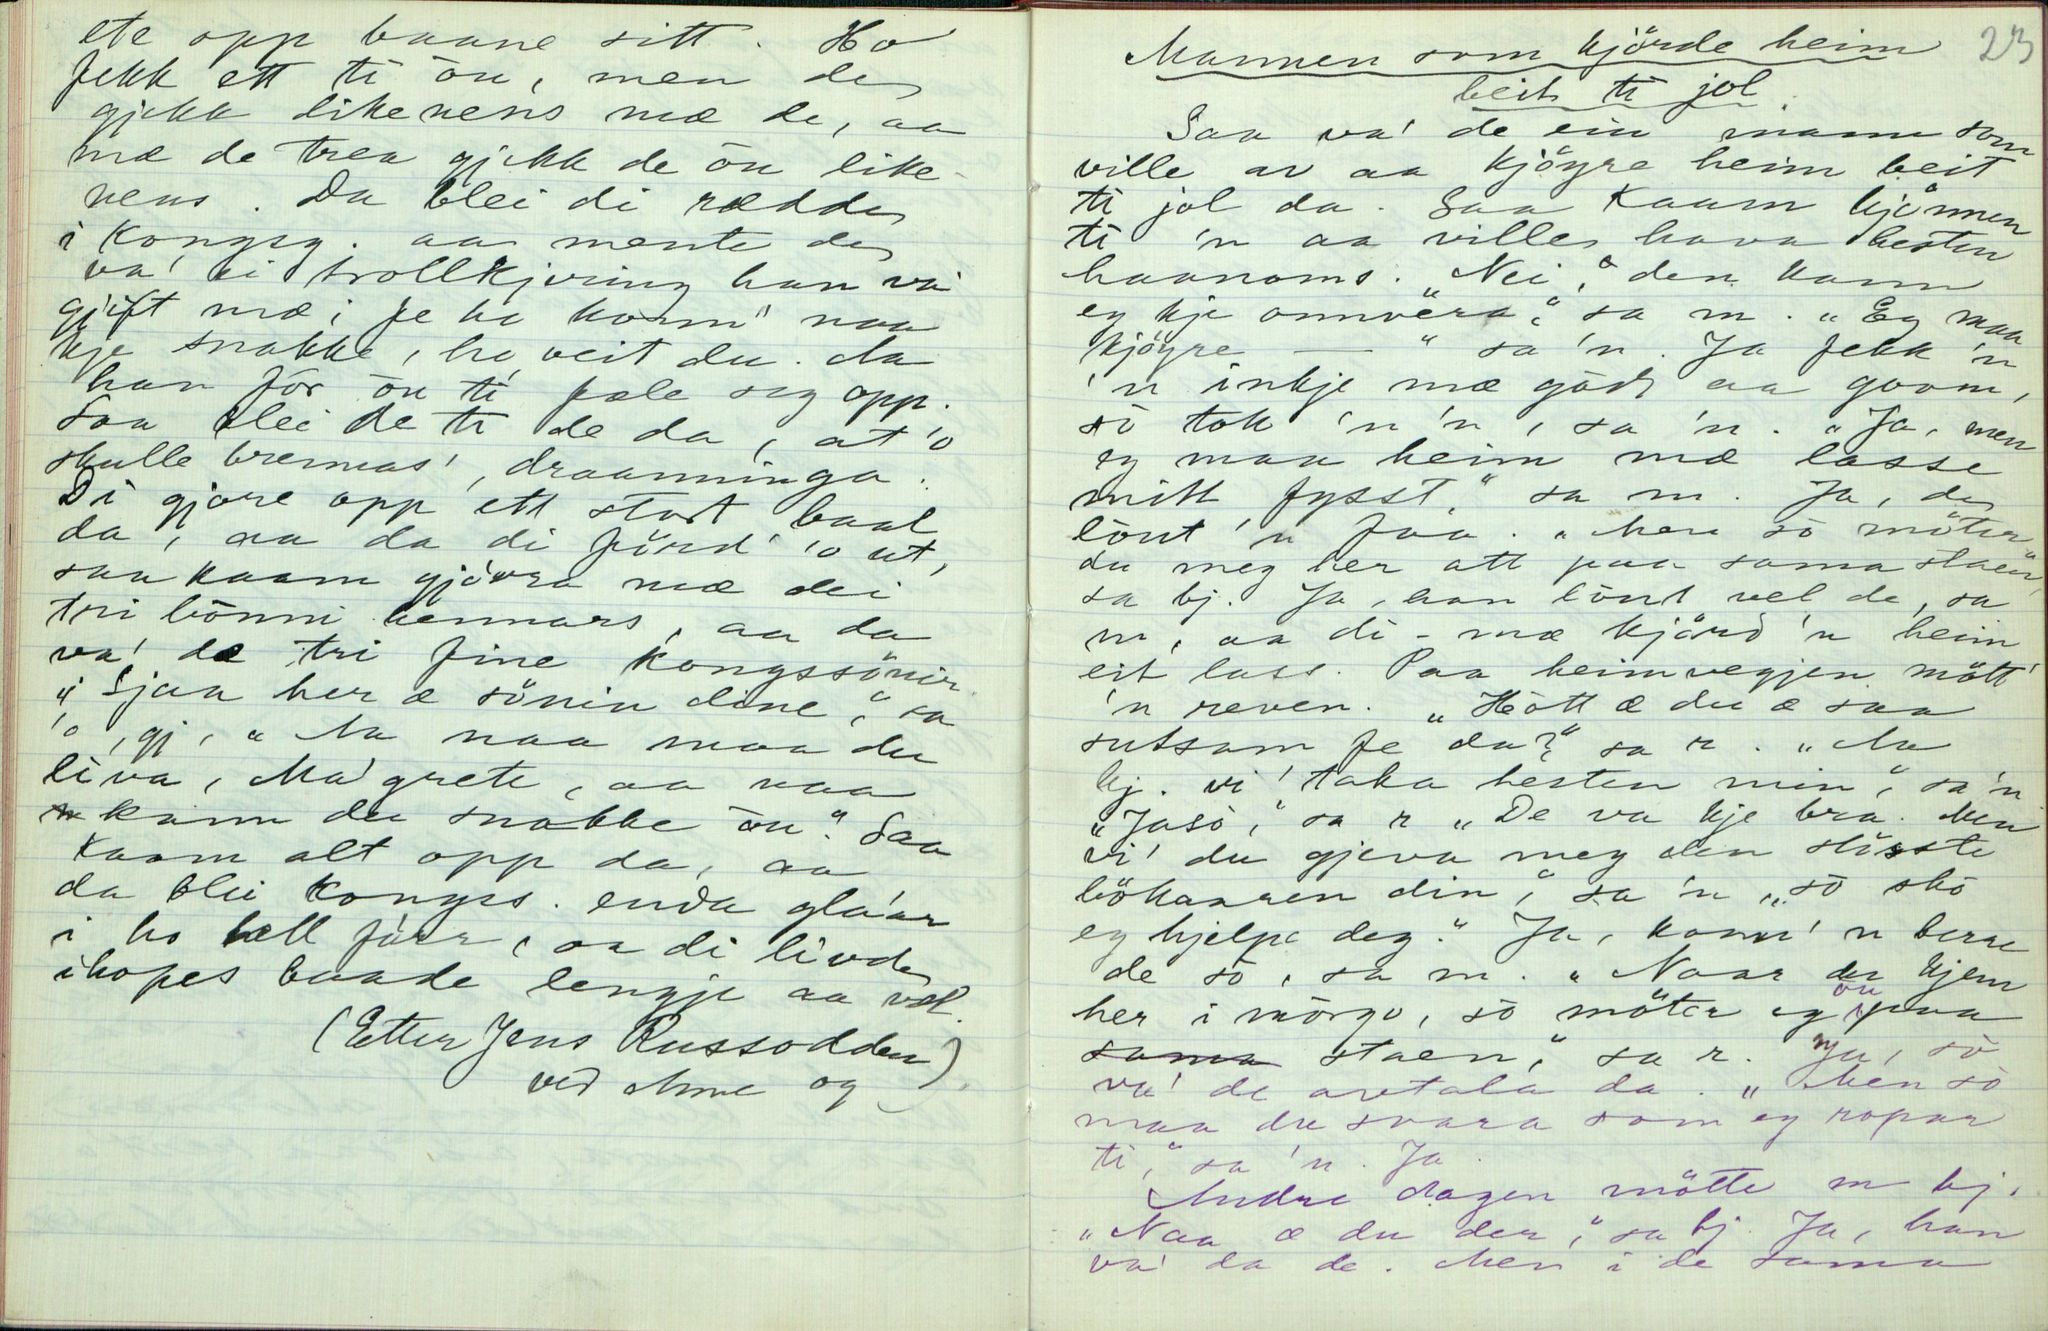 ete opp baane sitt. Ho
fekk ett ti ōu, men de
gjekk likenens mæ de, aa
mæ de trea gjekk de ōu like-
nens. Da blei di rædde
i kongsg. aa mente de
va' ei trollkjering han va
gjift mæ; fe ho konn' naa
kje snakke, ho veit du. Aa
han for ōu ti pæle seg opp.
Saa blei de ti de da, at 'o
skulle brennas', draanninga.
Di gjore opp ett stort baal
da, aa da di förd' 'o ut,
saa kaam gjövra mæ dei
tri bönni hennars, aa da
va' de tri fine kongssönir.
"Sjaa her æ sönin dine," sa
'o, gj, "Aa naa maa du
liva, Ma'grete, aa naa
kann du snakke ōu." Saa
kaam alt opp da, aa
da blei kongss. enda gla'ar
i ho hell förr, aa di livde
ihopes baade lengje aa væl.
(Etter Jens Russodden
ved Anne og ).
23
Mannen som kjörde heim
beit ti jol.
Saa va' de ein mann som
ville av aa kjöyre heim beit
ti jol da. Saa kaam bjönnen
ti 'n aa ville hava hesten
haanoms. "Nei, den kann
eg kje onnvera," sa m. "Eg maa
kjöyre —" sa 'n. Ja fekk 'n
'n inkje mæ godt aa goom,
sō tok 'n 'n, sa 'n. "Ja, men
eg maa heim mæ lasse
mitt fysst," sa m. Ja, de
lōnt 'n faa. "Men sō möter
du meg her att paa sama staen"
sa bj. Ja, han lōnt vel de, sa
m, aa di-mæ kjörd 'n heim
eit lass. Paa heimvegjen mött'
'n reven. "Hōtt æ du æ saa
sutsam fe da?" sa r. "Aa
bj. vi' taka hesten min," sa 'n
"Jasō," sa r "De va kje bra. Men
vi' du gjeva meg den stösste
bökaaren din," sa 'n, "sō skō
eg hjelpe deg." Ja, konn' 'n berre
de sō, sa m. "Naar du kjem
her i mōrgo, sō möter eg ōu paa
sama staen," sa r. Ja, sō
va' de avtala da. "Men sō
maa du svara som eg ropar
ti," sa 'n. Ja.
Andre dagen mötte m bj.
"Naa æ du der," sa bj. Ja, han
va' da de. Men i de sama